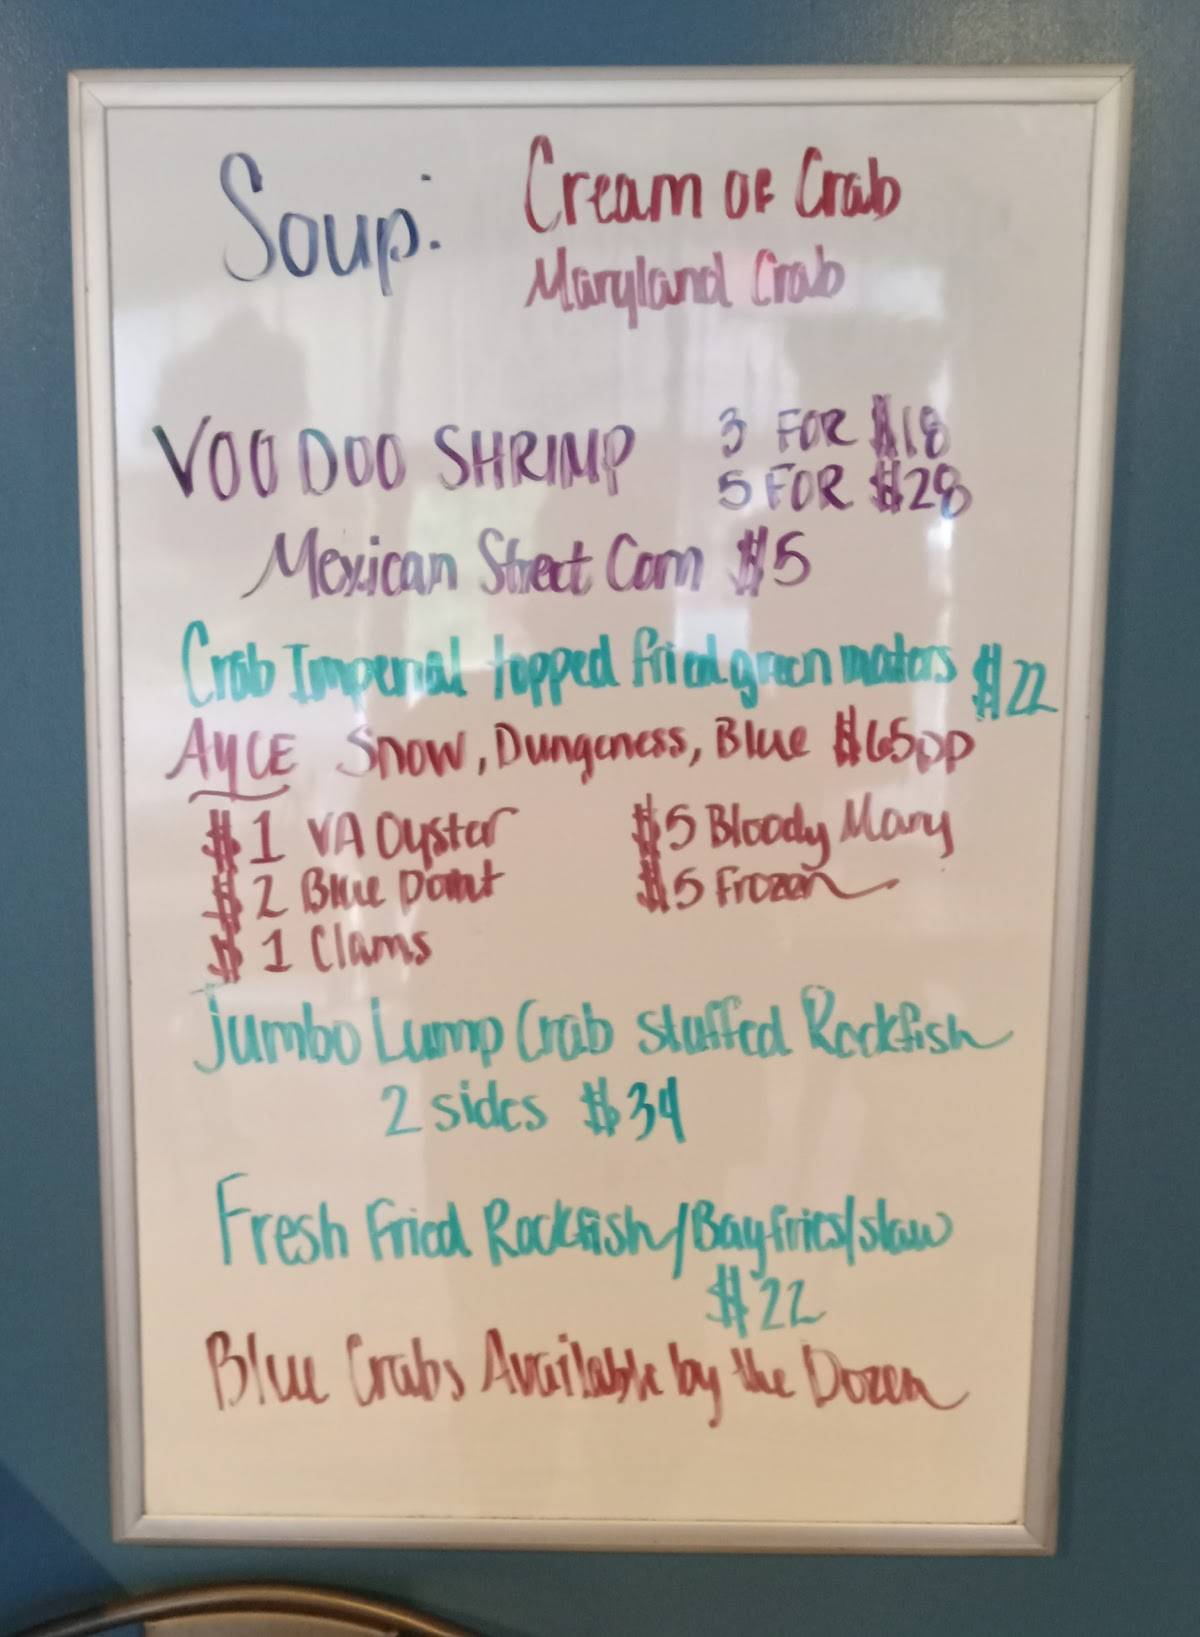 Soup: Cream OF Crab
Maryland Crab
VOODOO SHRIMP 3 FOR $18
5 FOR $28
Mexican Street Corn $5
Crab Imperial topped fried green maters $22
AYCE Snow, Dungeness, Blue $65pp
$1 VA Oyster $5 Bloody Mary
$2 Blue Point $5 Frozen
$1 Clams
Jumbo Lump Crab Stuffed Rockfish
2 sides $34
Fresh Fried Rockfish/Bay fries/slaw
$22
Blue Crabs Available by the Dozen